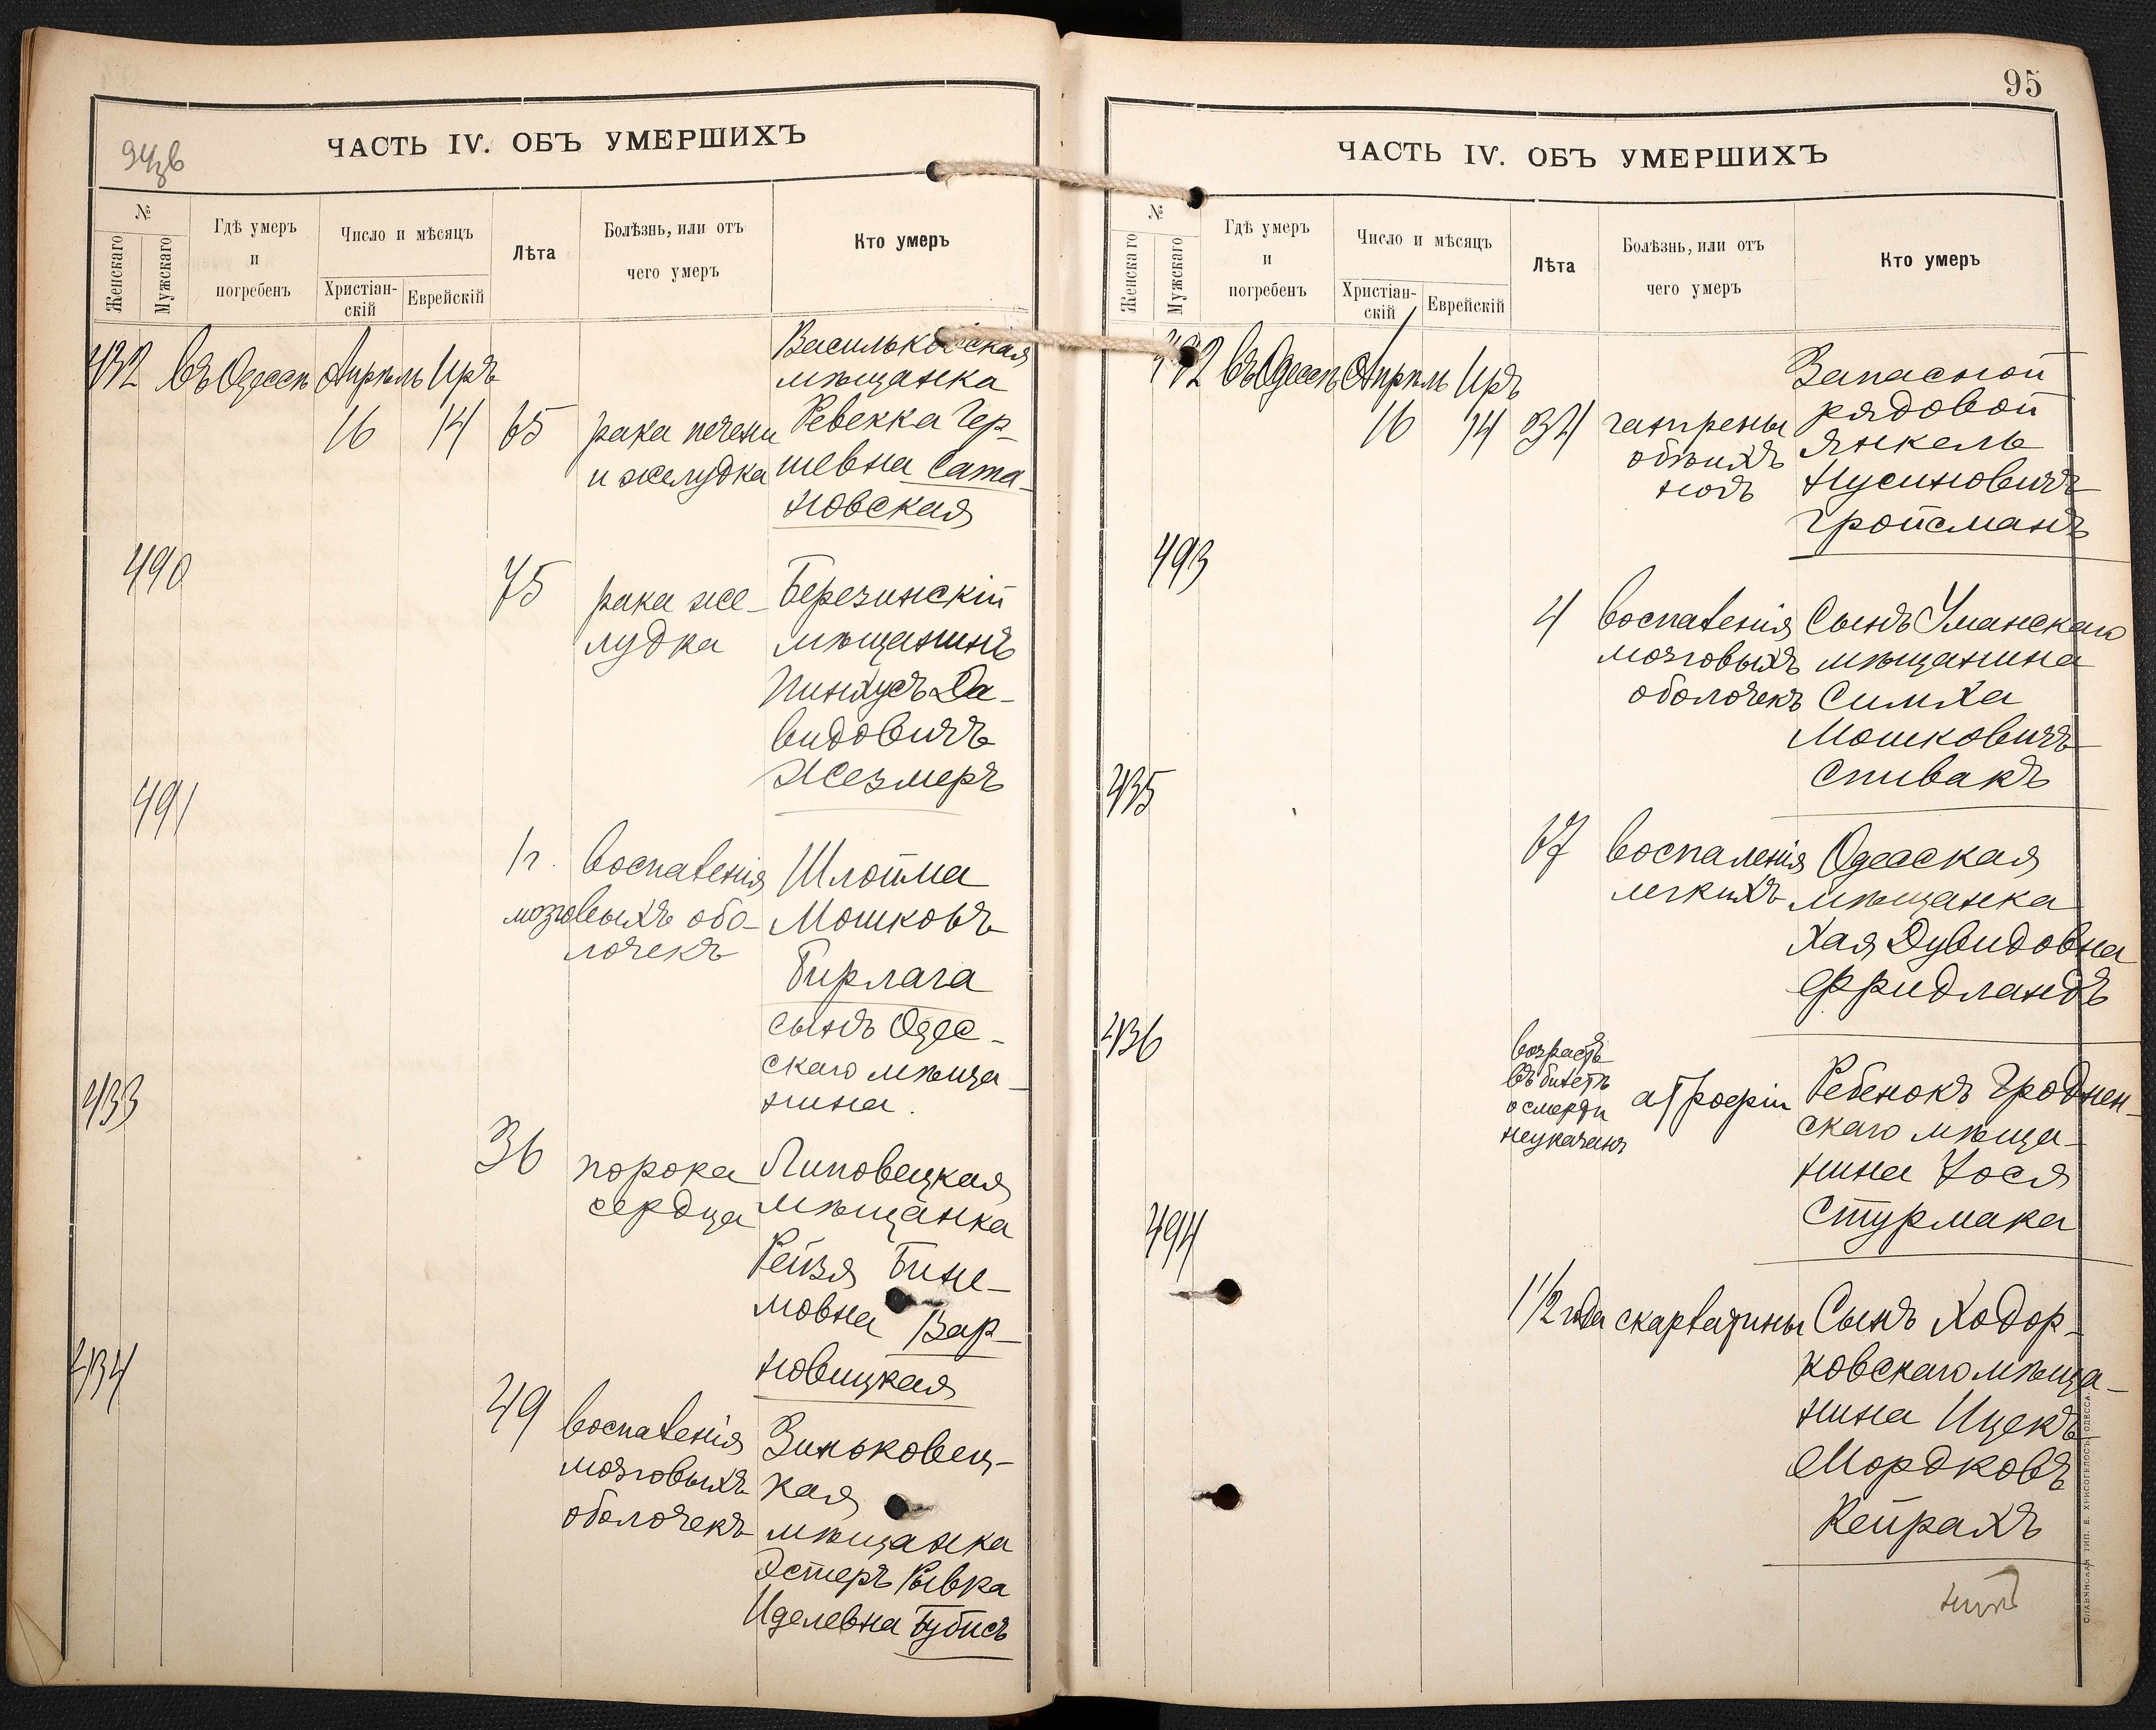 94 зв
ЧАСТЬ IV. ОБЪ УМЕРШИХЪ
№
Женскаго
Мужскаго
Гдѣ умеръ
и
погребенъ
Число и мѣсяцъ
Христіан-
скій
Еврейскій
Лѣта
Болѣзнь, или отъ
чего умеръ
Кто умеръ
432 въ Одессѣ Апрѣль Иръ
16 14 65
рака печени
и желудка
Васильковская
мѣщанка
Ревекка Гер-
шевна Сата-
новская
490
75
рака же-
лудка
Березинскій
мѣщанинъ
Пинхусъ Да-
видовичъ
Жезмеръ
491
1 г.
воспаленія
мозговыхъ обо-
лочекъ
Шлойма
Мошковъ
Бирлага
сынъ Одес-
скаго мѣща-
нина.
433
36
порока
сердца
Липовецкая
мѣщанка
Рейзя Бине-
мовна Вар-
новицкая
434
49
воспаленія
мозговыхъ
оболочекъ
Зиньковец-
кая
мѣщанка
Эстеръ Рывка
Иделевна Бубисъ
95
ЧАСТЬ IV. ОБЪ УМЕРШИХЪ
№
Женскаго
Мужскаго
Гдѣ умеръ
и
погребенъ
Число и мѣсяцъ
Христіан-
скій
Еврейскій
Лѣта
Болѣзнь, или отъ
чего умеръ
Кто умеръ
492 въ Одессѣ Апрѣль Иръ
16 14 34
гангрены
обѣихъ
ногъ
Запасной
рядовой
Янкель
Нусиновичъ
Гройсманъ
493
4
воспаленія
мозговыхъ
оболочекъ
Сынъ Уманскаго
мѣщанина
Симха
Мошковичъ
Спивакъ
435
67
воспаленія
легкихъ
Одесская
мѣщанка
Хая Дувидовна
Фридландъ
436
возрастъ
въ билетѣ
о смерти
неуказанъ
атрофіи
Ребенокъ Гроднен-
скаго мѣща-
нина Іося
Стурмака
494
1 1/2 года
скарлатины
Сынъ Ходор-
ковскаго мѣща-
нина Ицекъ
Мордковъ
Кейрахъ
СЛАВЯНСКАЯ ТИП. Е. ХРИСОГЕЛОСЪ, ОДЕССА.